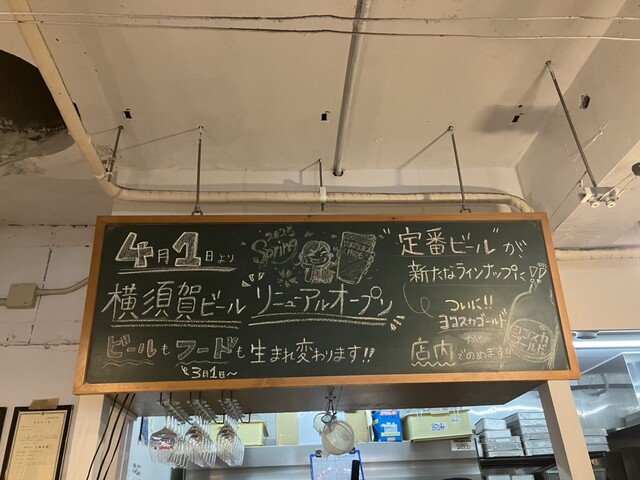 4月1日より
横須賀ビール リニューアルオープン
ビールもフードも生まれ変わります!!
3月1日〜
2025
Spring
"定番ビール"が、
新たなラインナップに!!
ついに!!
ヨコスカゴールド
が
店内でのめます!!
ヨコスカ
ゴールド